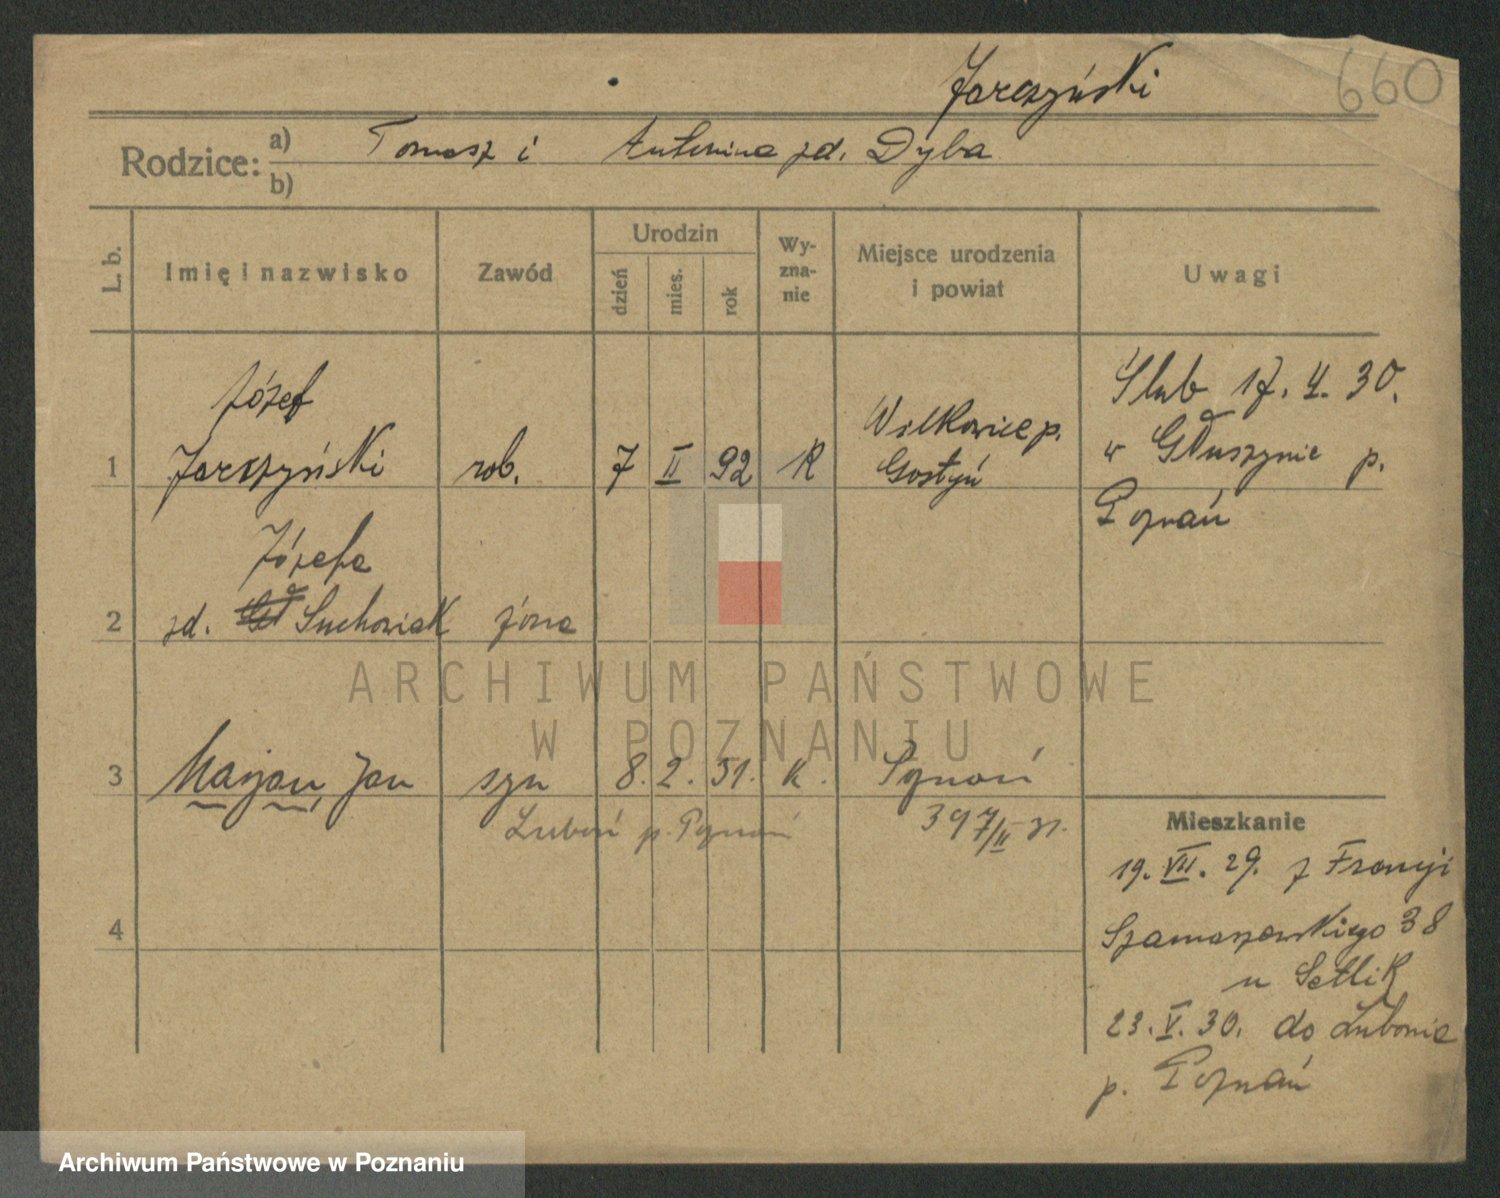 Jarczyński
660
Rodzice: a) Tomasz i Antonina zd. Dyba
b)
L. b.
Imię i nazwisko
Zawód
Urodzin
dzień
mies.
rok
Wy-
zna-
nie
Miejsce urodzenia
i powiat
Uwagi
Józef
1 Jarczyński rob. 7 II 92 R
Wilkowice p.
Gostyń
Ślub 17. 4. 30.
w Głuszynie p.
Poznań
Józefa
2 zd. Suchowiak żona
3 Marjan, Jan syn 8. 2. 31. k. Poznań
Luboń p. Poznań 397/II 31.
4
Mieszkanie
19. VII. 29. z Francji
Szamarzewskiego 38
u Setlik
23. V. 30. do Lubonia
p. Poznań
ARCHIWUM PAŃSTWOWE
W POZNANIU
Archiwum Państwowe w Poznaniu